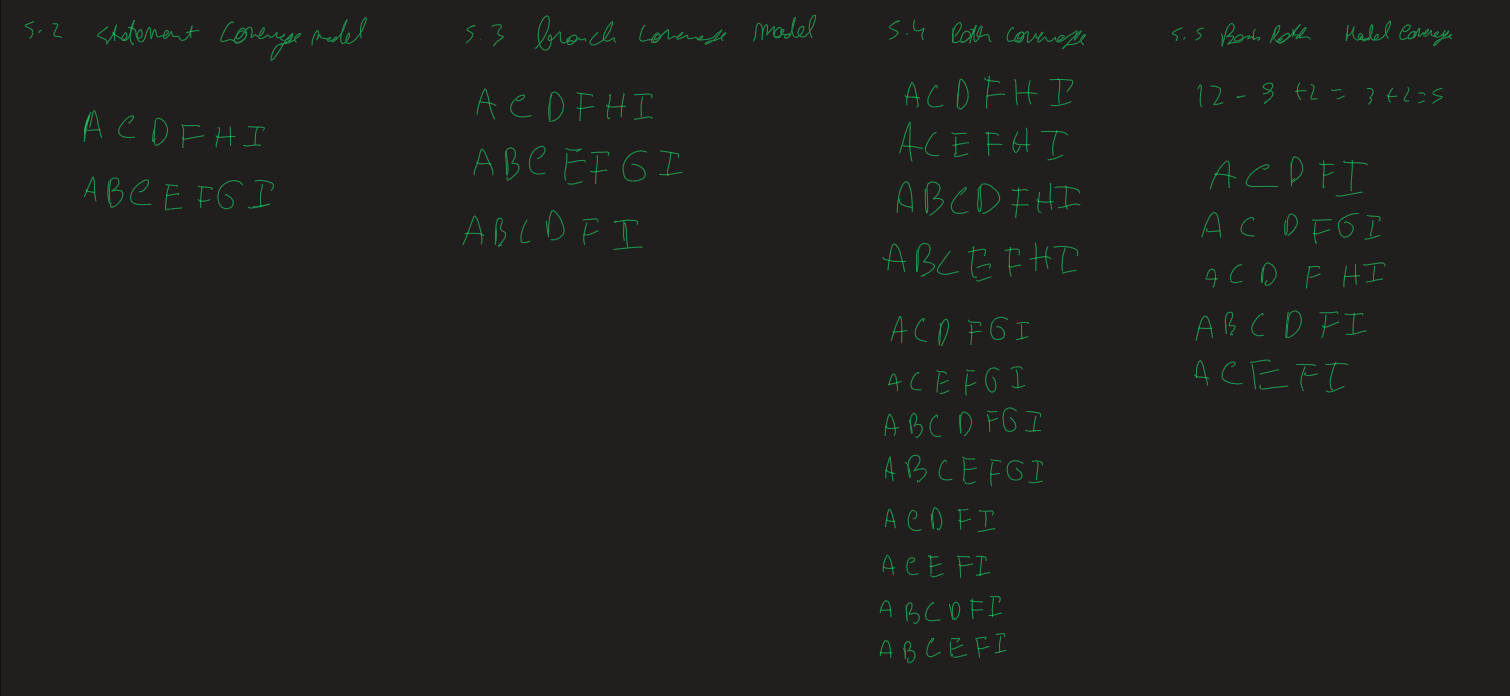 5.2 statement Coverage model
A C D F H I
A B C E F G I
5.3 branch coverage model
A C D F H I
A B C E F G I
A B C D F I
5.4 Path coverage
A C D F H I
A C E F H I
A B C D F H I
A B C E F H I
A C D F G I
A C E F G I
A B C D F G I
A B C E F G I
A C D F I
A C E F I
A B C D F I
A B C E F I
5.5 Basis Path Model Coverage
12 - 9 + 2 = 3 + 2 = 5
A C D F I
A C D F G I
A C D F H I
A B C D F I
A C E F I